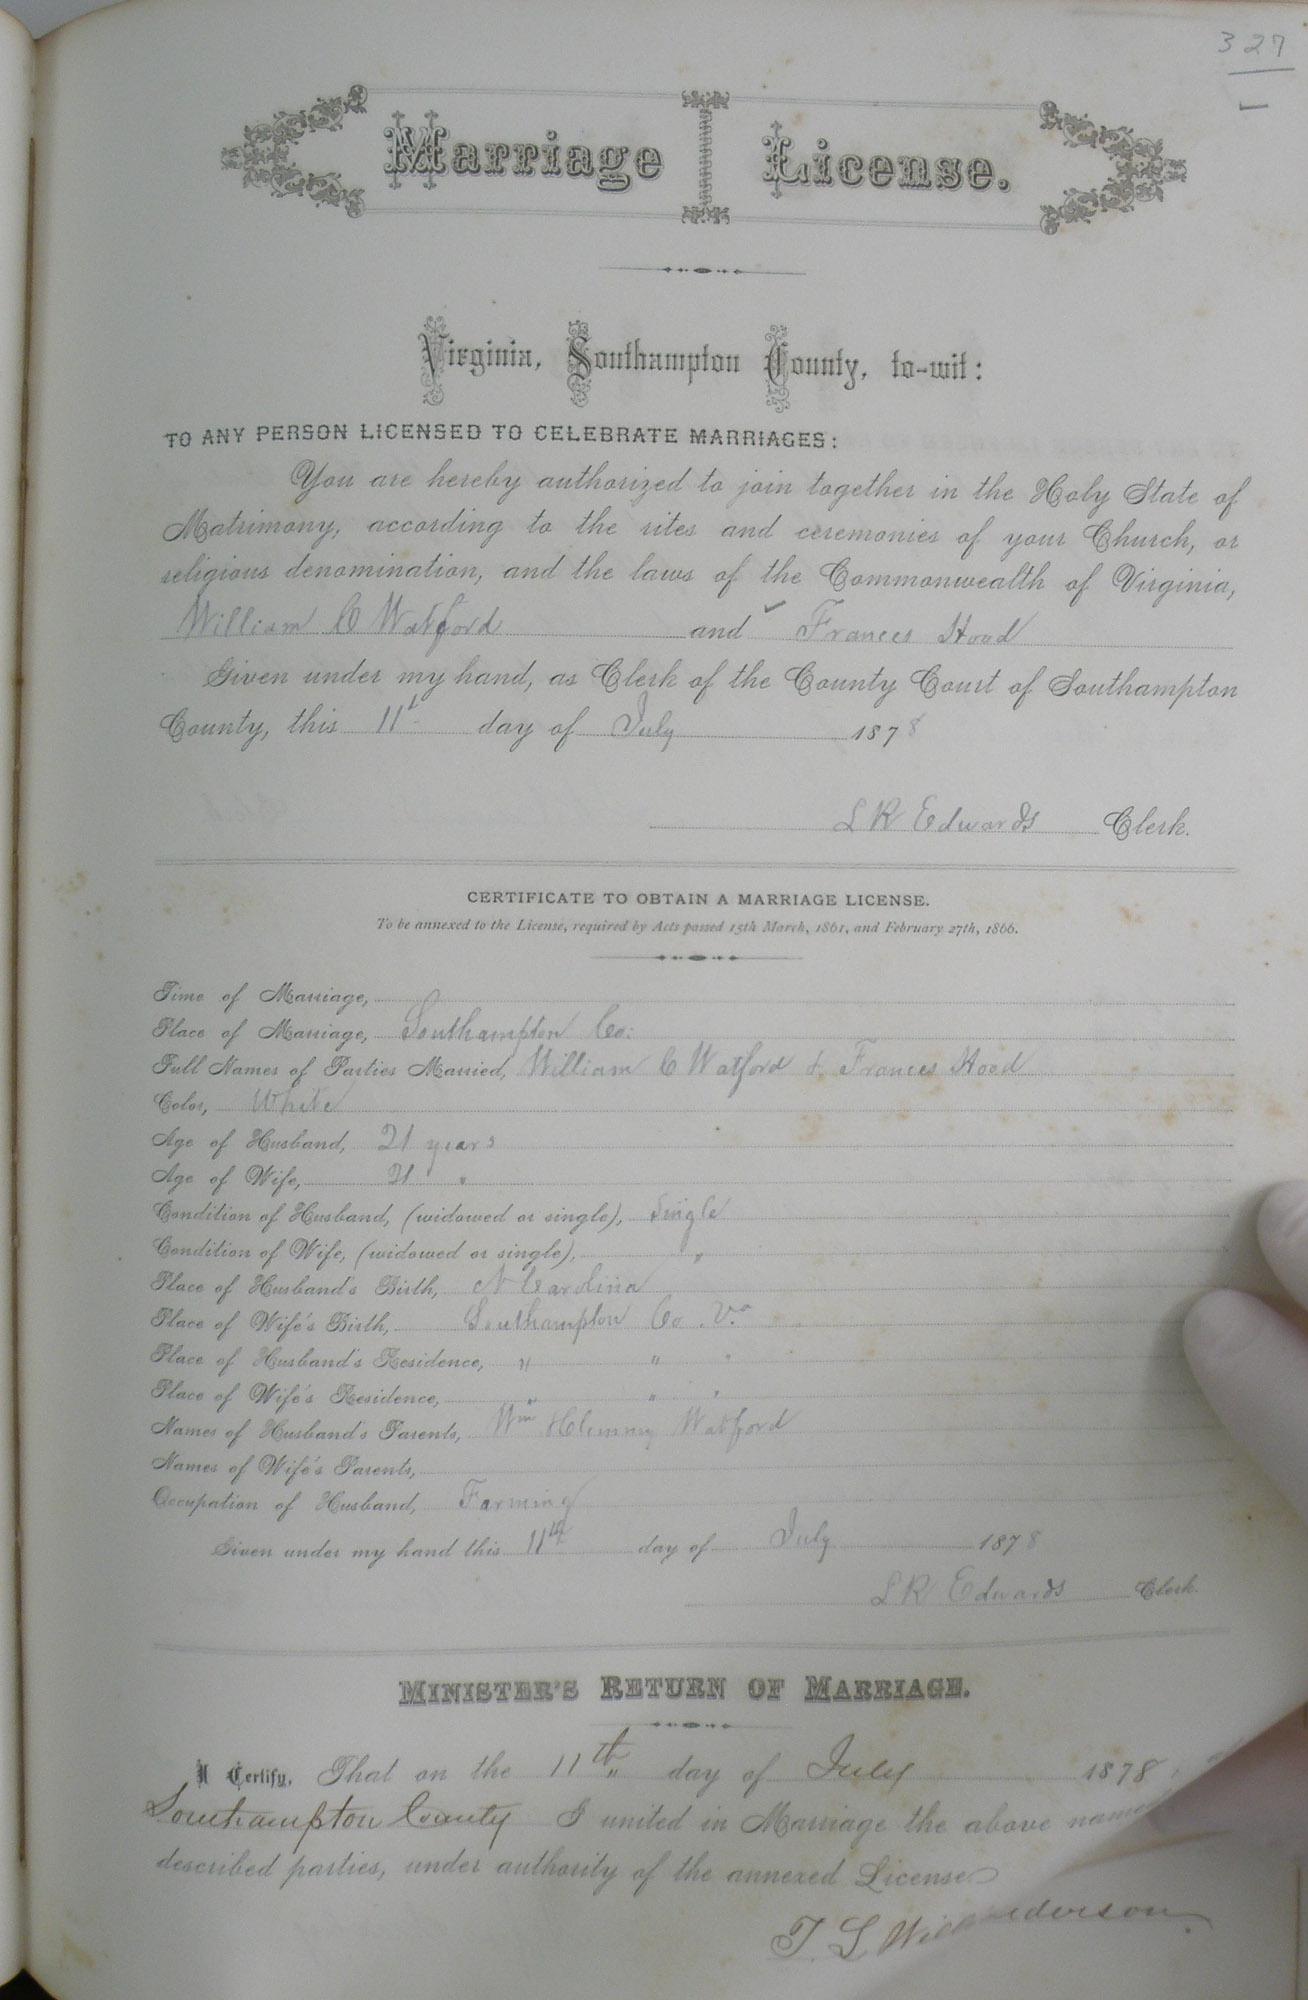 327
Marriage License.
Virginia, Southampton County, to-wit:
TO ANY PERSON LICENSED TO CELEBRATE MARRIAGES:
You are hereby authorized to join together in the Holy State of
Matrimony, according to the rites and ceremonies of your Church, or
religious denomination, and the laws of the Commonwealth of Virginia,
William C Watford and Frances Hood
Given under my hand, as Clerk of the County Court of Southampton
County, this 11th day of July 1878
L R Edwards Clerk.
CERTIFICATE TO OBTAIN A MARRIAGE LICENSE.
To be annexed to the License, required by Acts passed 15th March, 1861, and February 27th, 1866.
Time of Marriage,
Place of Marriage, Southampton Co:
Full Names of Parties Married, William C Watford & Frances Hood
Color, White
Age of Husband, 21 years
Age of Wife, 21 "
Condition of Husband, (widowed or single), Single
Condition of Wife, (widowed or single), "
Place of Husband's Birth, N Carolina
Place of Wife's Birth, Southampton Co. Va
Place of Husband's Residence, " " "
Place of Wife's Residence, " " "
Names of Husband's Parents, Wm Watford
Names of Wife's Parents,
Occupation of Husband, Farming
Given under my hand this 11th day of July 1878
L R Edwards Clerk.
MINISTER'S RETURN OF MARRIAGE.
I Certify, That on the 11th day of July 1878
Southampton County I united in Marriage the above
described parties, under authority of the annexed License